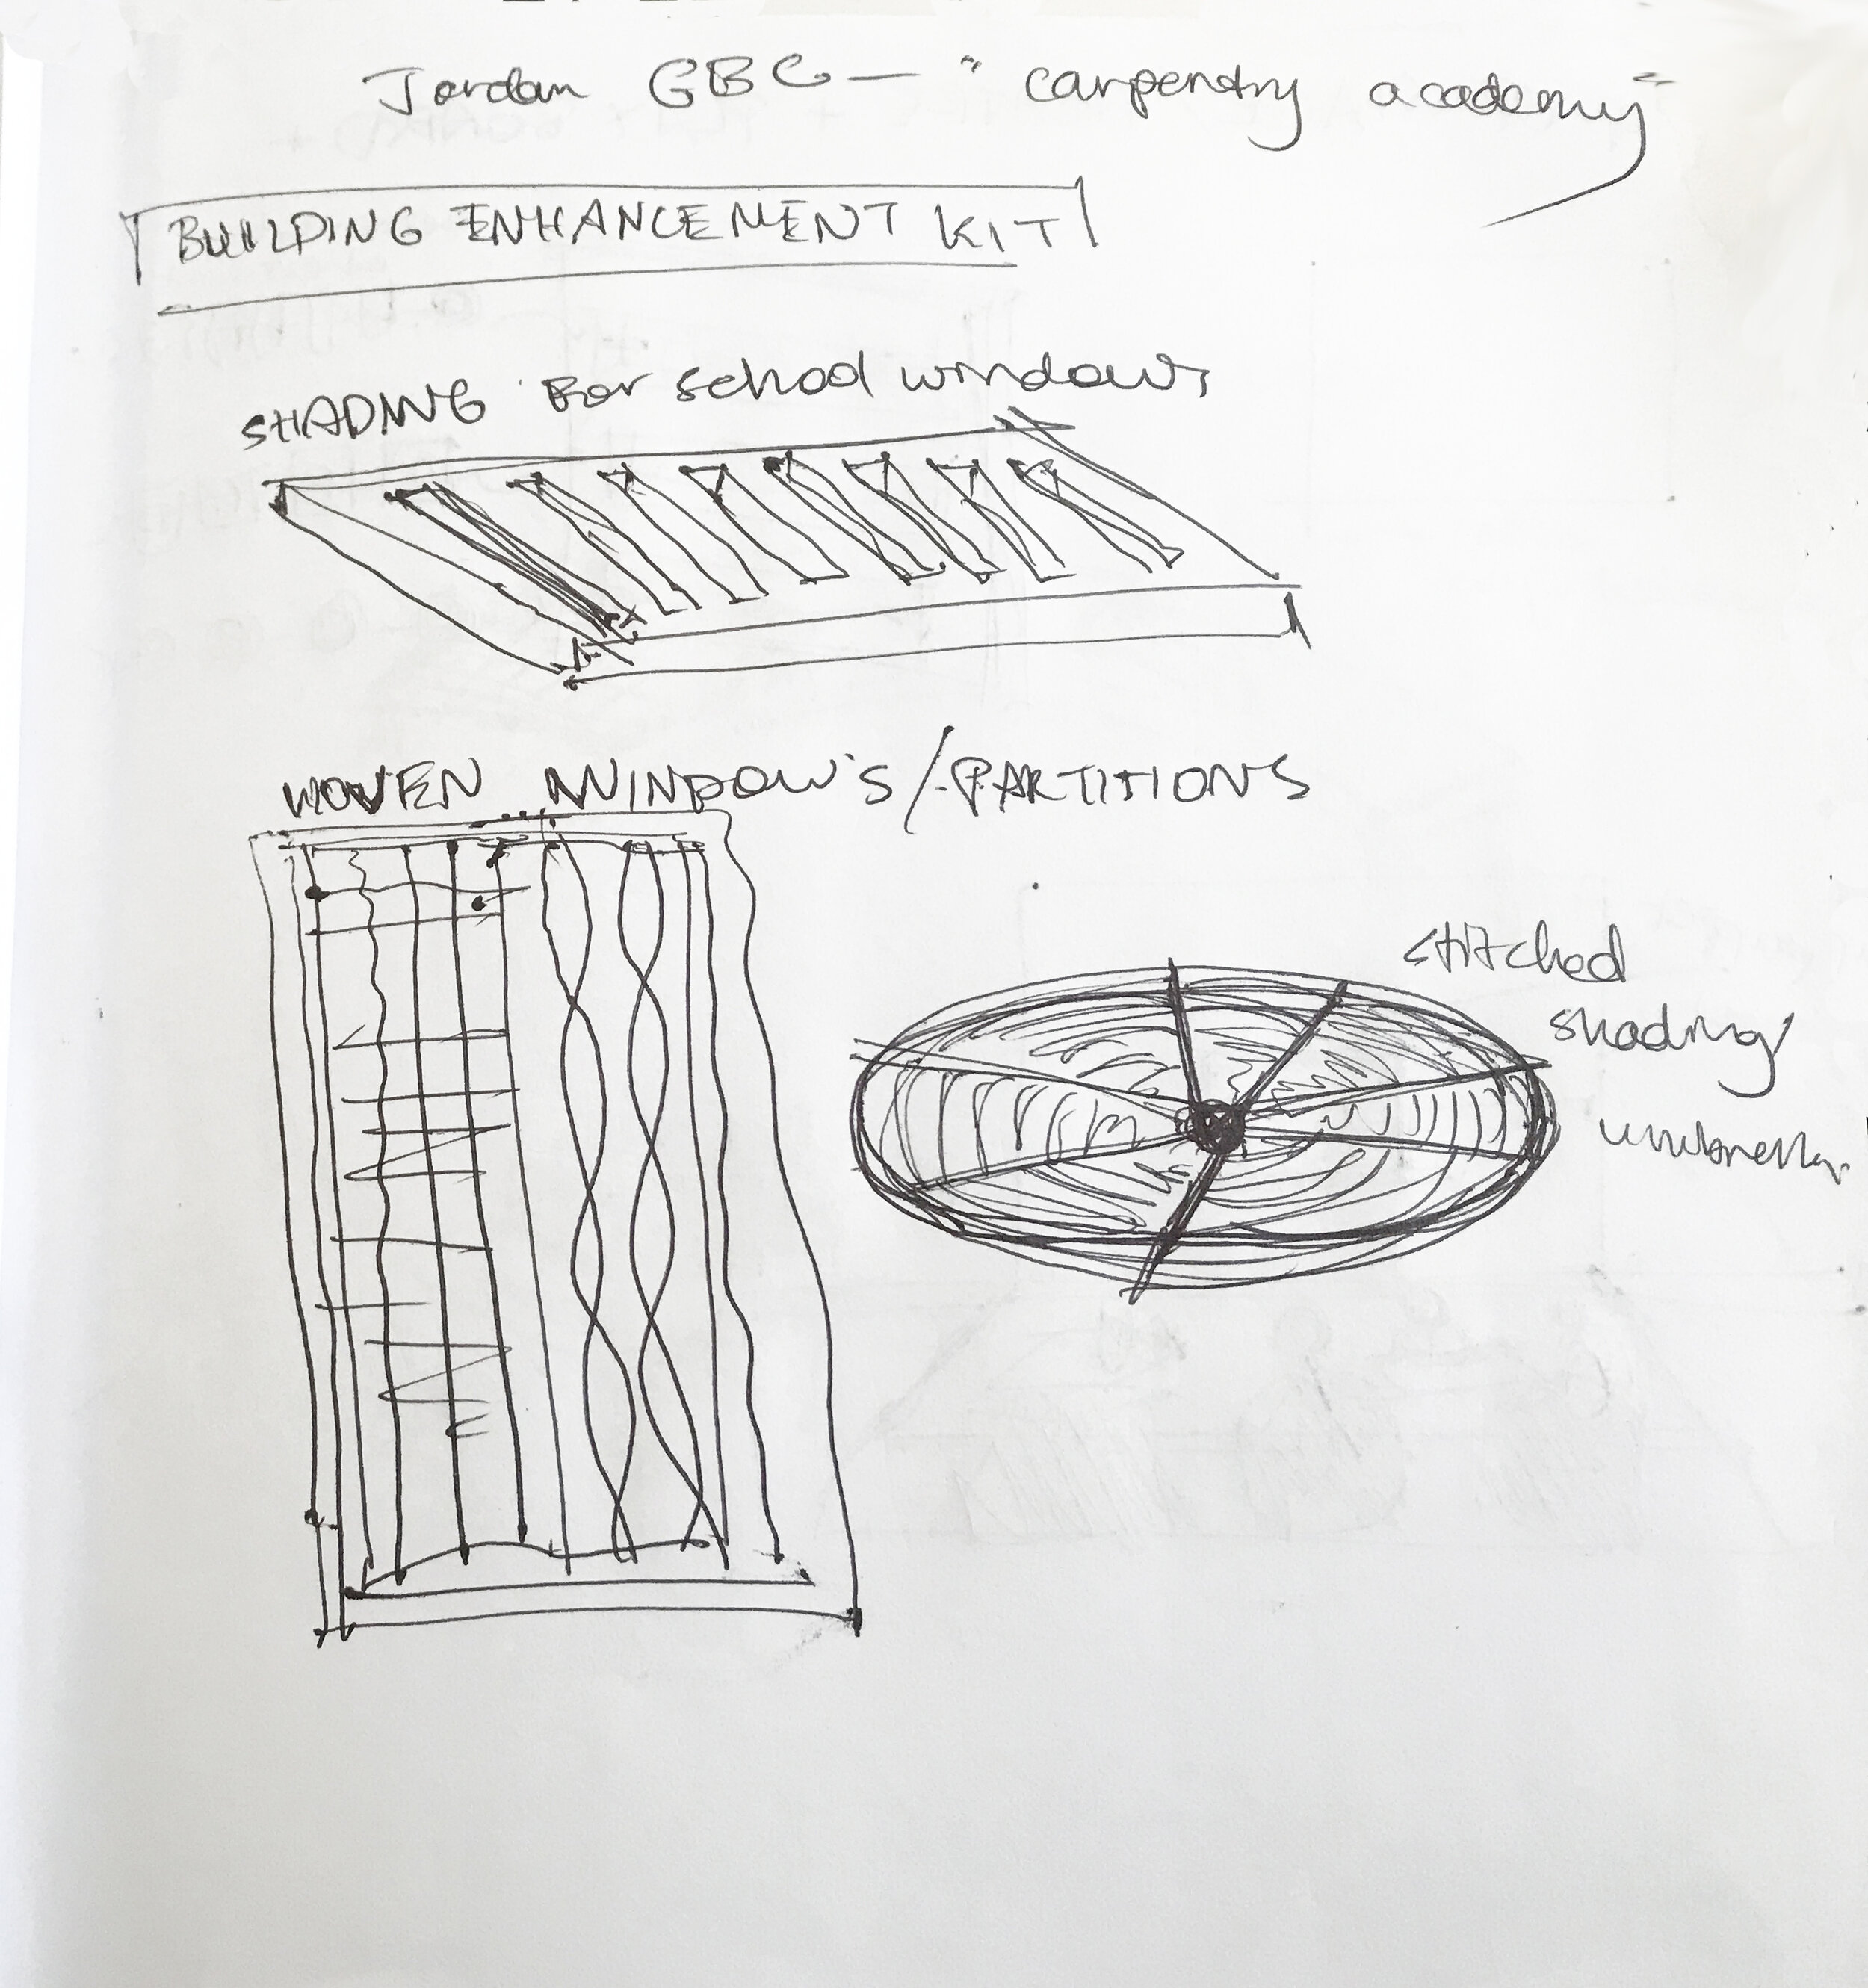 Jordan GBC — "carpendry academy"
BUILDING ENHANCEMENT KIT
SHADING For school windows
WOVEN WINDOW'S / PARTITIONS
stitched
shading
umbrella